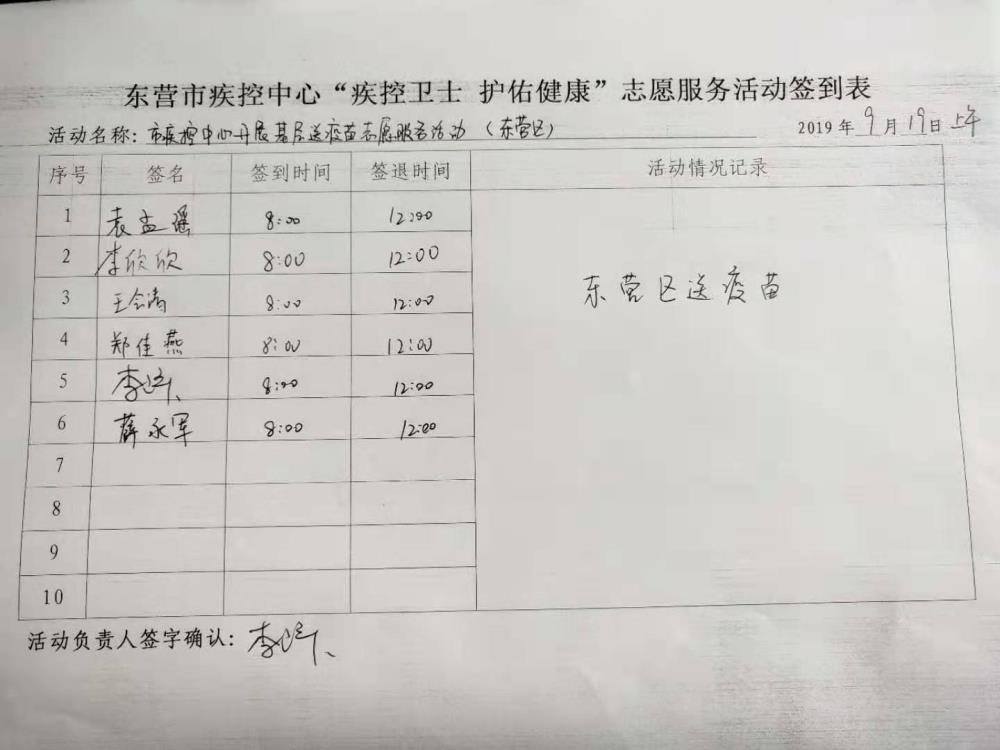 东营市疾控中心“疾控卫士 护佑健康”志愿服务活动签到表
活动名称：市疾控中心开展基层送疫苗志愿服务活动（东营区） 2019年9月19日上午
序号 签名 签到时间 签退时间 活动情况记录
1 袁孟瑶 8:00 12:00
2 李欣欣 8:00 12:00
东营区送疫苗
3 8:00 12:00
4 郑佳燕 8:00 12:00
5 李 8:00 12:00
6 薛永军 8:00 12:00
7
8
9
10
活动负责人签字确认：李